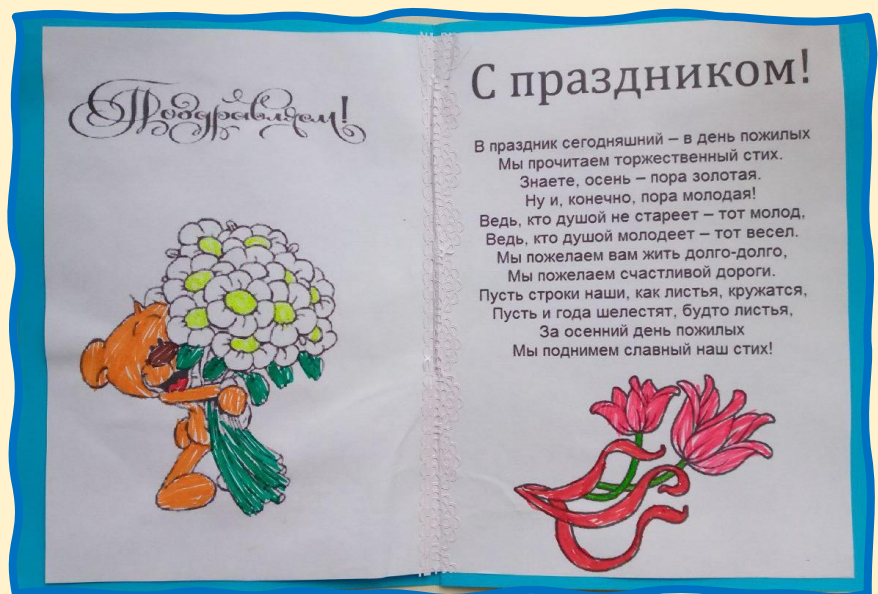 Поздравляем!
С праздником!
В праздник сегодняшний – в день пожилых
Мы прочитаем торжественный стих.
Знаете, осень – пора золотая.
Ну и, конечно, пора молодая!
Ведь, кто душой не стареет – тот молод,
Ведь, кто душой молодеет – тот весел.
Мы пожелаем вам жить долго-долго,
Мы пожелаем счастливой дороги.
Пусть строки наши, как листья, кружатся,
Пусть и года шелестят, будто листья,
За осенний день пожилых
Мы поднимем славный наш стих!